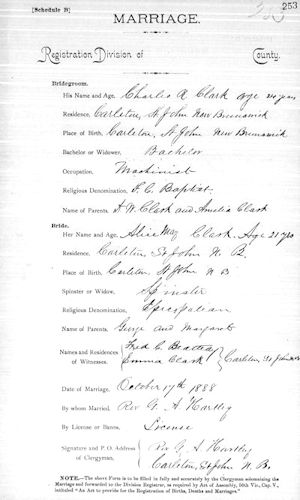 [Schedule B]
253
MARRIAGE.
Registration Division of County.
Bridegroom.
His Name and Age, Charlie A Clark age 24 years
Residence, Carleton, St John New Brunswick
Place of Birth, Carleton, St John New Brunswick
Bachelor or Widower, Bachelor
Occupation, Machinist
Religious Denomination, F. C. Baptist
Name of Parents, A W. Clark and Amelia Clark
Bride.
Her Name and Age, Alice May Clark. Age 21 yrs
Residence, Carleton St John N. B.
Place of Birth, Carleton St John N B
Spinster or Widow, Spinster
Religious Denomination, Episcopalean
Name of Parents, George and Margaret
Names and Residences of Witnesses.
Fred C. Beatteay
Emma Clark
Carleton, St John N B
Date of Marriage, October 17th 1888
By whom Married, Rev G. A Hartley
By License or Banns, License
Signature and P. O. Address of Clergyman,
Rev G. A Hartley
Carleton, St John N. B.
NOTE.—The above Form is to be filled in fully and accurately by the Clergyman solemnizing the
Marriage and forwarded to the Division Registrar, as required by Act of Assembly, 50th Vic., Cap. V.,
intituled "An Act to provide for the Registration of Births, Deaths and Marriages."